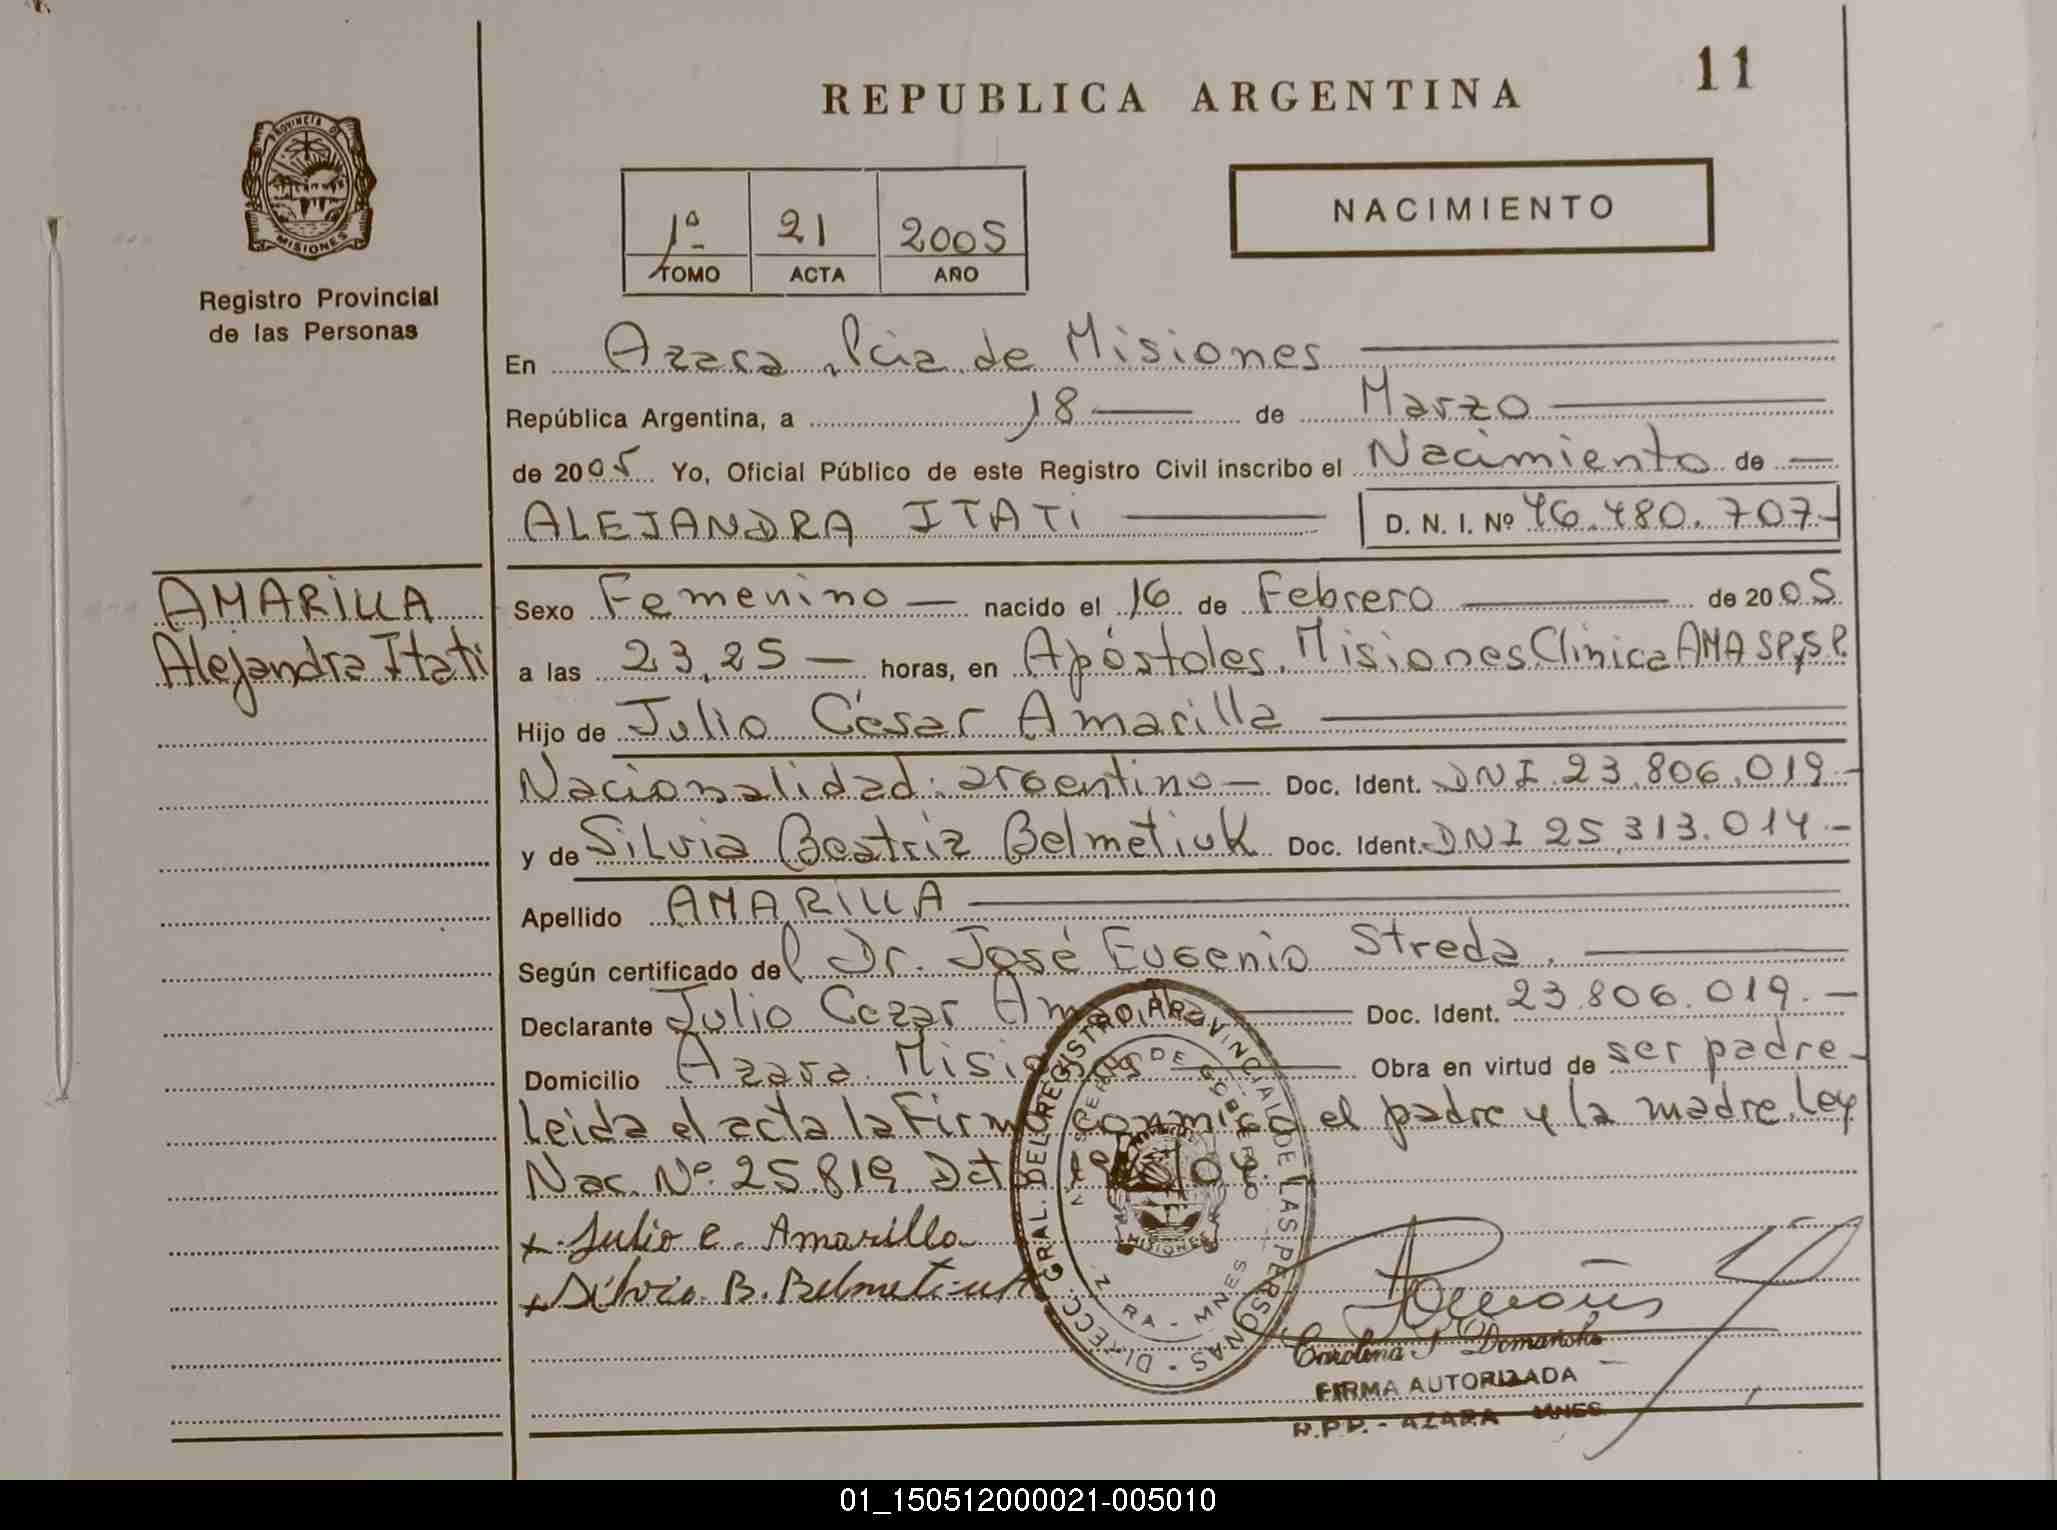 11
REPUBLICA ARGENTINA
PROVINCIA DE
MISIONES
Registro Provincial
de las Personas
1ª 21 2005
TOMO ACTA AÑO
NACIMIENTO
En Azara, Pcia. de Misiones
República Argentina, a 18 de Marzo
de 2005 Yo, Oficial Público de este Registro Civil inscribo el Nacimiento de
ALEJANDRA ITATI D. N. I. Nº 46.480.707.-
AMARILLA
Alejandra Itati
Sexo Femenino nacido el 16 de Febrero de 2005
a las 23,25 horas, en Apóstoles, Misiones Clínica AMA SP, SP.
Hijo de Julio César Amarilla
Nacionalidad: argentino Doc. Ident. DNI 23.806.019.-
y de Silvia Beatriz Belmetiuk Doc. Ident. DNI 25.313.014.-
Apellido AMARILLA
Según certificado del Dr. José Eugenio Streda.
Declarante Julio Cezar Doc. Ident. 23.806.019.-
Domicilio Azara. Misiones Obra en virtud de ser padre-
Leida el acta la Firma conmigo el padre y la madre. Ley
Nac. Nº 25.819.
x Julio C. Amarilla
x Silvia B. Belmetiuk
DIRECC. GRAL. DEL REGISTRO PROVINCIAL DE LAS PERSONAS
DE GOBIERNO
MISIONES
RA - MNES
Carolina Domańska
FIRMA AUTORIZADA
R.P.P. - AZARA MNES
01_150512000021-005010